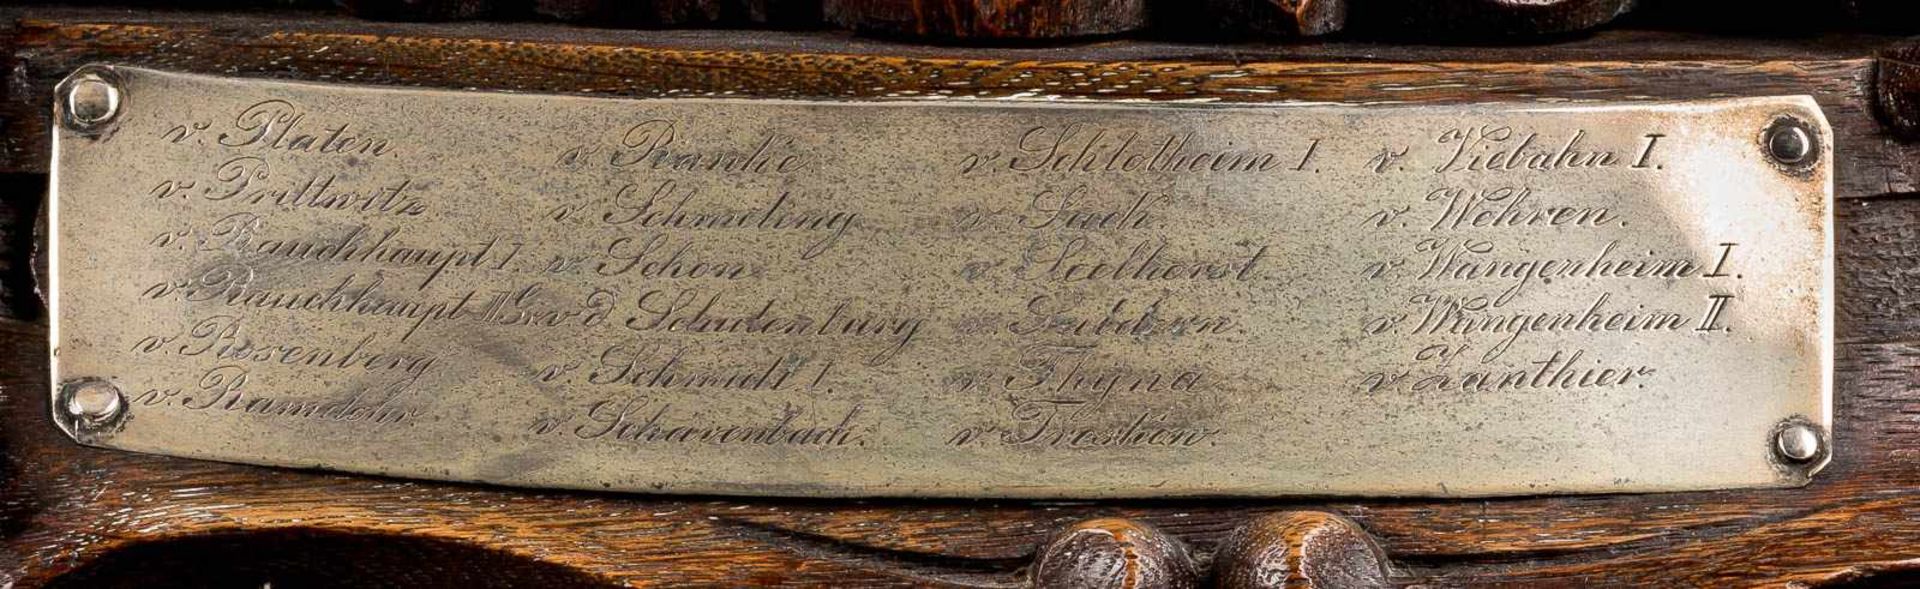 v. Platen.
v. Prittwitz
v. Rauchhaupt I.
v. Rauchhaupt II
v. Rosenberg
v. Ramdohr.
v. Ranke.
v. Schmeling
v. Schon
v. d. Schulenburg
v. Schmidt I.
v. Scharenbach.
v. Schlotheim I.
v. Sack.
v. Seelhorst
v.
v. Thyna
v. Treskow.
v. Viebahn I.
v. Wehren.
v. Wangenheim I.
v. Wangenheim II.
v. Zanthier.